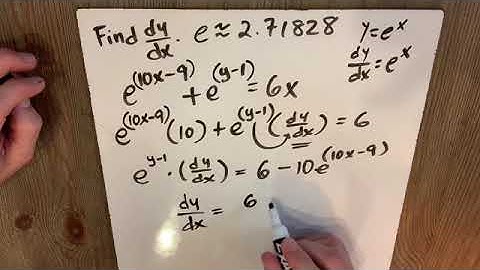 Find dy/dx. e≈2.71828
y=e^x
dy/dx=e^x
e^(10x-9) + e^(y-1) = 6x
e^(10x-9) (10) + e^(y-1) (dy/dx) = 6
e^y-1 · (dy/dx) = 6 - 10e^(10x-9)
dy/dx = 6